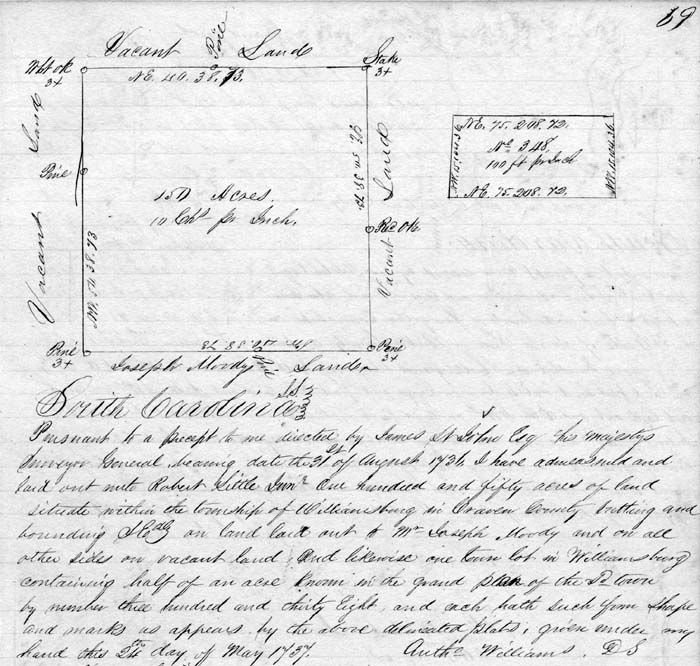 69
Vacant Pine Land
Wht ok 3+
Stake 3+
NE. 40. 38. 73.
Vacant Land
Pine
150 Acres
10 Chs pr Inch.
NW. 50 38.73
SE. 50 38 73.
Vacant Land
Red Ok
Pine 3+
SW. 40. 38 73
Pine 3+
Joseph Moody Pine Land.
NE. 75. 208. 72.
No 348
100 ft pr Inch
NE. 75. 208. 72.
South Carolina SS
Pursuant to a precept to me directed by James St John Esq his majestys
Surveyor General, bearing date the 31st of August 1736. I have admeasured and
laid out unto Robert Little Junr One hundred and fifty acres of land
situate within the township of Williamsburg in Craven County butting and
bounding on land laid out to Mr Joseph Moody and on all
other sides on vacant land, And likewise one town lot in Williamsburg
containing half of an acre known in the grand plan of the Sd town
by number three hundred and thirty Eight, and each hath such form shape
and marks as appears by the above delineated plats; given under my
hand this 24 day of May 1737. Anthe Williams. DS